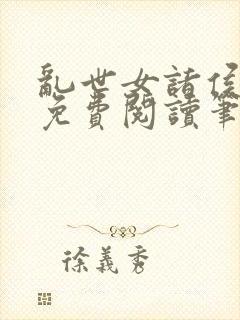 亂世女諸侯
免費閱讀筆
徐義秀